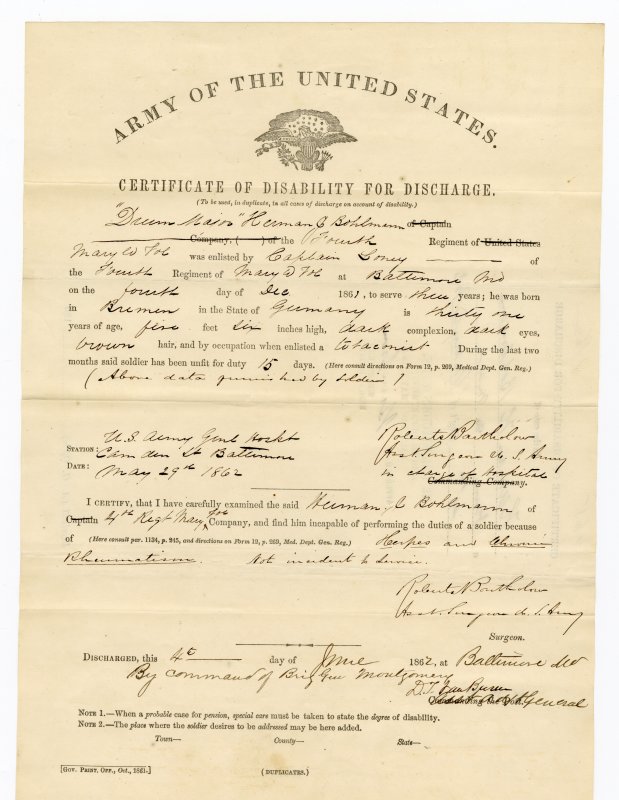 ARMY OF THE UNITED STATES.
CERTIFICATE OF DISABILITY FOR DISCHARGE.
(To be used, in duplicate, in all cases of discharge on account of disability.)
"Drum Major" Herman C Bohlmann of Captain
Company, ( ) of the Fourth Regiment of United States
Mary'd Vol was enlisted by Captain Loney of
the Fourth Regiment of Mary'd Vol at Baltimore Md
on the fourth day of Dec 1861, to serve three years; he was born
in Bremen in the State of Germany is thirty one
years of age, five feet six inches high, dark complexion, dark eyes,
brown hair, and by occupation when enlisted a tobaconist During the last two
months said soldier has been unfit for duty 15 days. (Here consult directions on Form 12, p. 269, Medical Dept. Gen. Reg.)
(Above data furnished by soldier)
STATION: U.S. Army Genl Hospt
Camden St Baltimore
DATE: May 29th 1862
Roberts Bartholow
Asst. Surgeon U. S. Army
in charge of Hospital
Commanding Company.
I CERTIFY, that I have carefully examined the said Herman C Bohlmann of
Captain 4th Regt Mary Vol Company, and find him incapable of performing the duties of a soldier because
of (Here consult par. 1134, p. 245, and directions on Form 12, p. 269, Med. Dept. Gen. Reg.) Herpes and Chronic
Rheumatism. Not incident to service.
Roberts Bartholow
Asst. Surgeon U. S. Army
Surgeon.
DISCHARGED, this 4th day of June 1862, at Baltimore Md
By command of Brig Gen Montgomery
D. T. Van Buren
Commanding the Post.
General
NOTE 1.—When a probable case for pension, special care must be taken to state the degree of disability.
NOTE 2.—The place where the soldier desires to be addressed may be here added.
Town— County— State—
[GOV. PRINT. OFF., Oct., 1861.]
(DUPLICATES.)